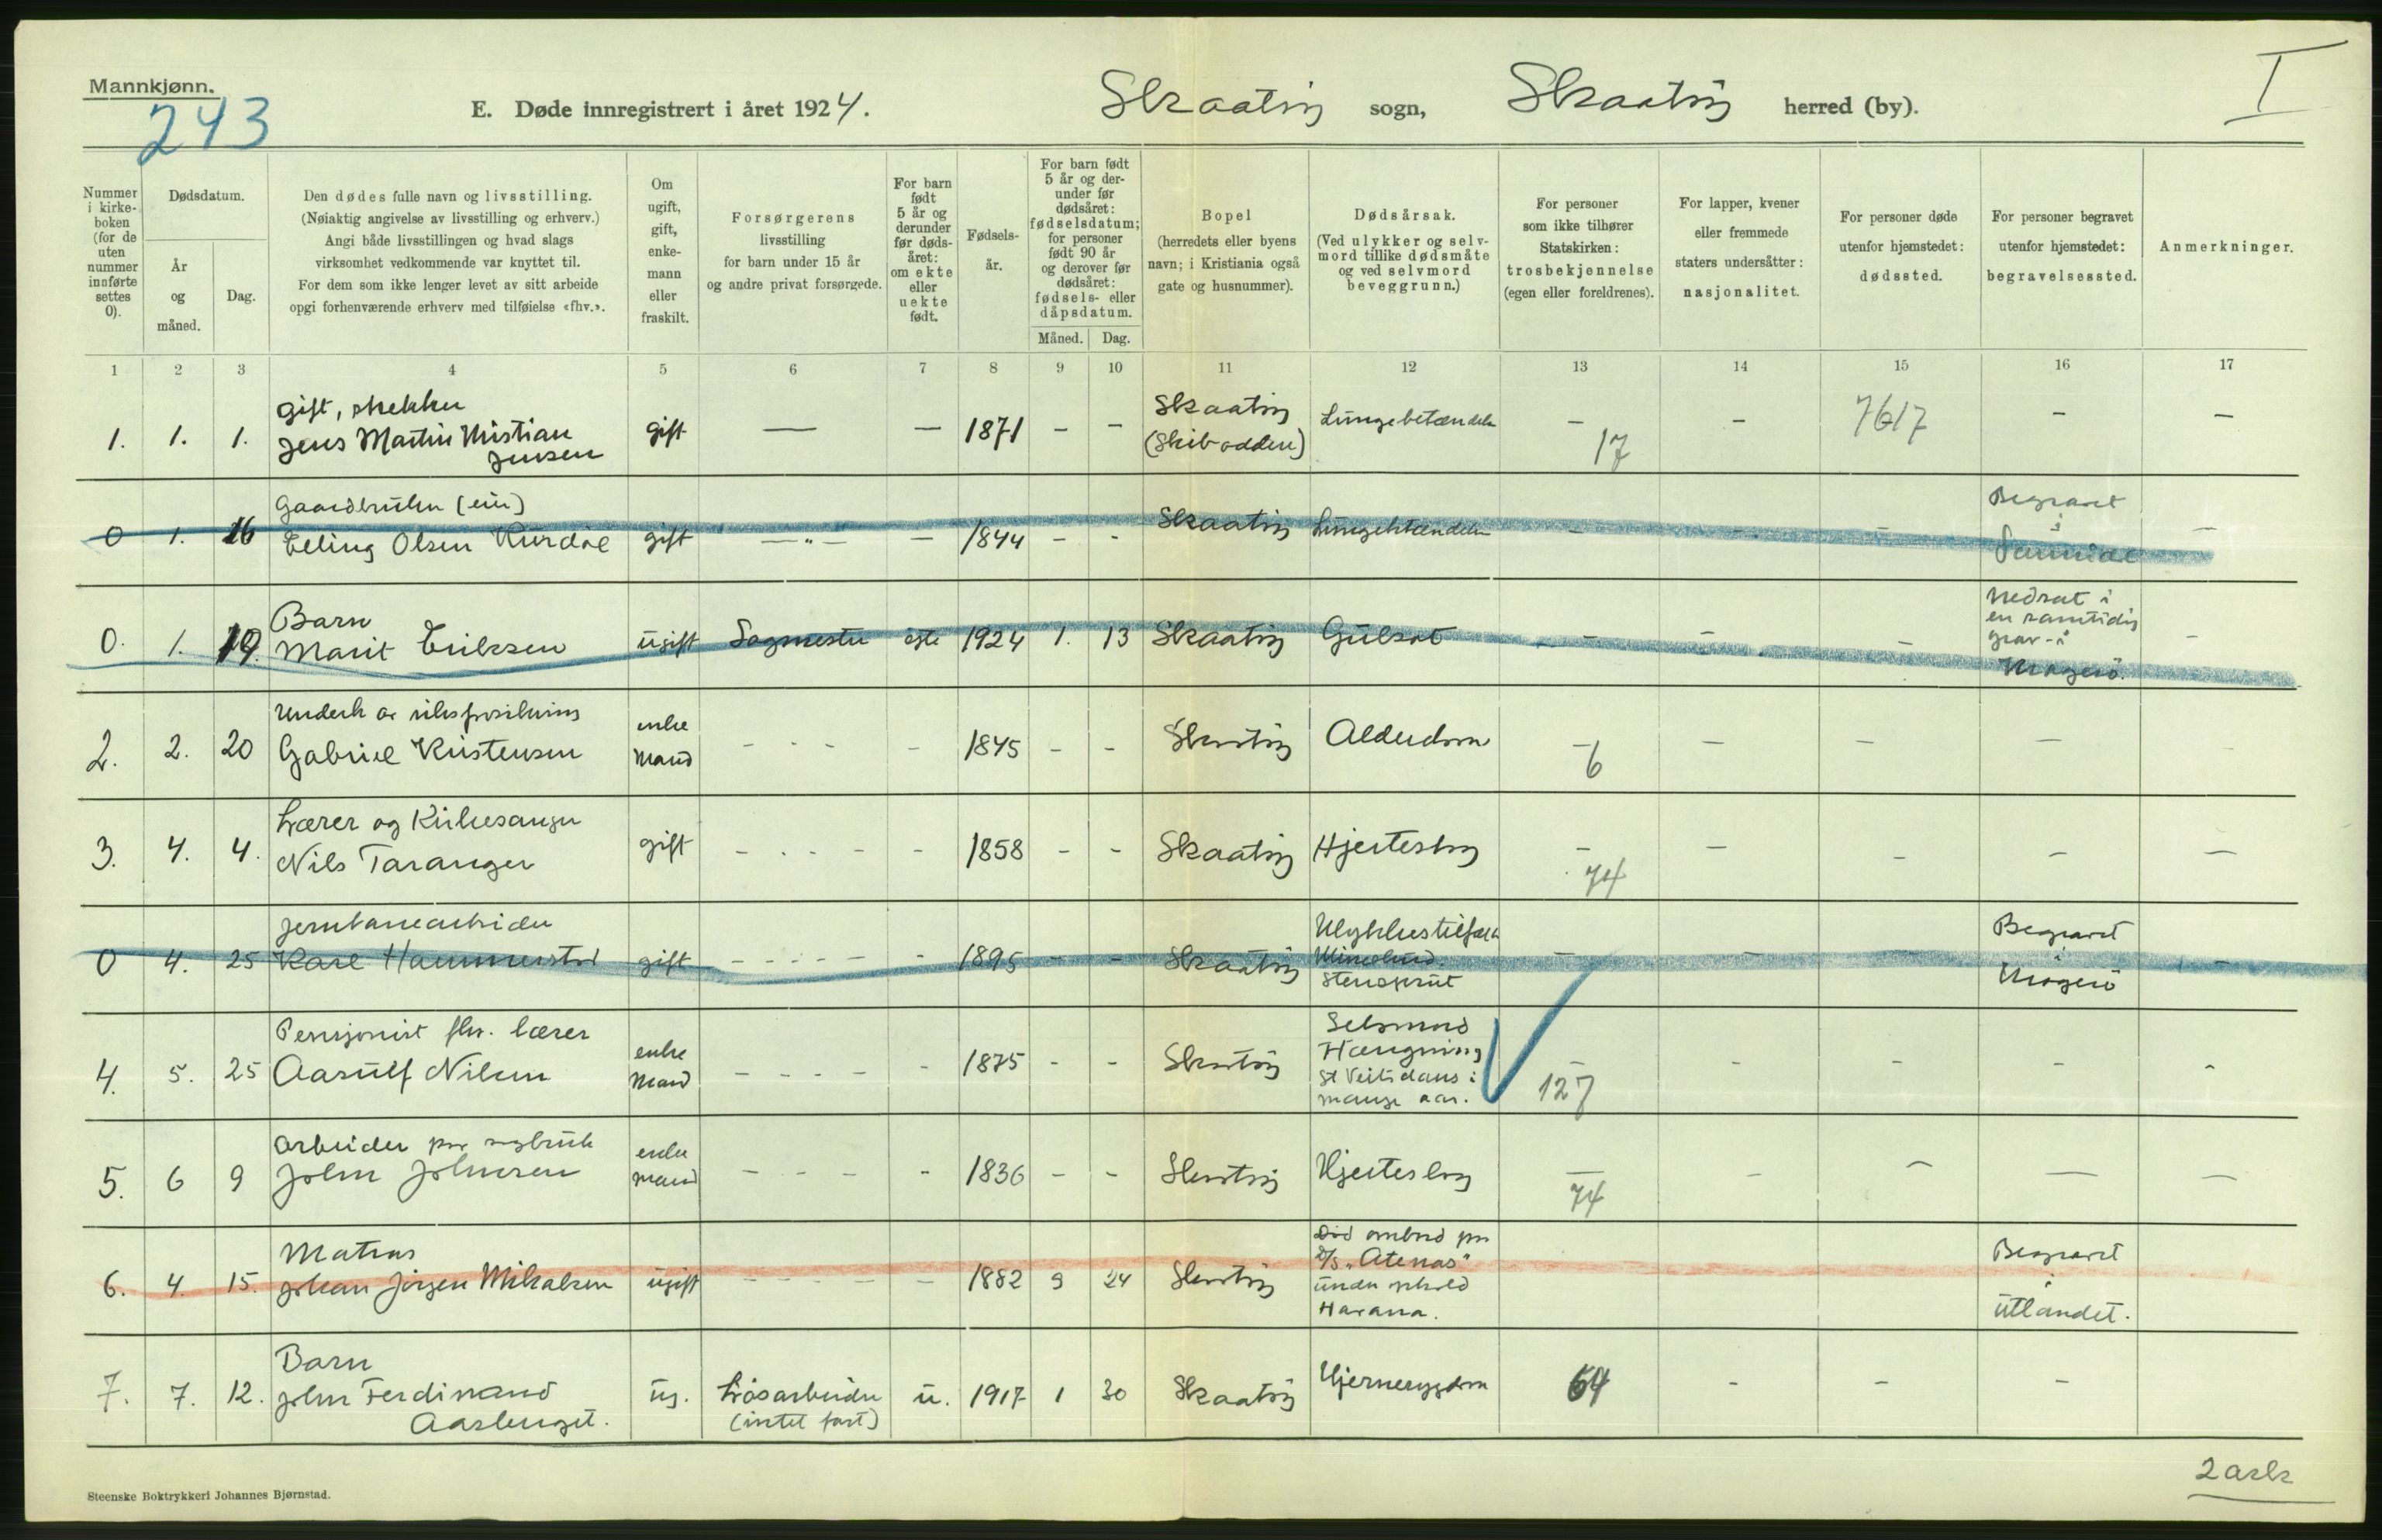 Mannkjønn.
243
E. Døde innregistrert i året 1924.
Skaatøy sogn, Skaatøy herred (by).
I
Nummer i kirkeboken (for de uten nummer innførte settes 0).
Dødsdatum.
År og måned.
Dag.
Den dødes fulle navn og livsstilling.
(Nøiaktig angivelse av livsstilling og erhverv.)
Angi både livsstillingen og hvad slags
virksomhet vedkommende var knyttet til.
For dem som ikke lenger levet av sitt arbeide
opgi forhenværende erhverv med tilføielse «fhv.».
Om ugift, gift, enkemann eller fraskilt.
Forsørgerens
livsstilling
for barn under 15 år
og andre privat forsørgede.
For barn født 5 år og derunder før dødsåret: om ekte eller uekte født.
Fødselsår.
For barn født 5 år og derunder før dødsåret: fødselsdatum; for personer født 90 år og derover før dødsåret: fødsels- eller dåpsdatum.
Måned. Dag.
Bopel
(herredets eller byens
navn; i Kristiania også
gate og husnummer).
Dødsårsak.
(Ved ulykker og selvmord tillike dødsmåte
og ved selvmord
beveggrunn.)
For personer
som ikke tilhører
Statskirken:
trosbekjennelse
(egen eller foreldrenes).
For lapper, kvener
eller fremmede
staters undersåtter:
nasjonalitet.
For personer døde
utenfor hjemstedet:
dødssted.
For personer begravet
utenfor hjemstedet:
begravelsessted.
Anmerkninger.
1 2 3 4 5 6 7 8 9 10 11 12 13 14 15 16 17
gift,
1. 1. 1. Jens Martin Kristian Jensen gift — — 1871 - - Skaatøy (Skibodden) Lungebetændelse - 17 - 7617 - -
Gaardbruker (eier)
0 1. 16 Elling Olsen Kurdøl gift —"— — 1844 - - Skaatøy Lungebetændelse - - - Begravet i Sannidal -
Barn
0. 1. 19. Marit Eriksen ugift Sagmester egte 1924 1. 13 Skaatøy Gulsot - - - Nedsat i en samtidig grav i Kragerø. -
Underh av
2. 2. 20 Gabriel Kristensen enke mand - - - - 1845 - - Skaatøy Alderdom - 6 - - - -
Lærer og Kirkesanger
3. 4. 4. Nils Taranger gift - - - - 1858 - - Skaatøy Hjerteslag - 74 - - - -
Jernbanearbeider
0 4. 25 Karl Hammerstad gift - - - - - 1895 - - Skaatøy Ulykkestilfælde Mineskud. Stensprut - - - Begravet i Kragerø -
Pensjonist fhv. lærer
4. 5. 25 Aasulf Nilsen enke mand - - - - - 1875 - - Skaatøy Selvmord Hængning St Veitsdans i mange aar. - 127 - - - -
Arbeider paa sagbruk
5. 6 9 John Johnsen enke mand - - - - 1836 - - Skaatøy Hjerteslag — 74 - - — —
Matros
6. 4. 15. Johan Jørgen Mikalsen ugift - - - - - 1882 9 24 Skaatøy Død ombord paa D/S „Atenas" under ophold Havana. Begravet i utlandet.
Barn
7. 7. 12. John Ferdinand Aaslenget. ug. Løsarbeider (intet fast) u. 1917 1 30 Skaatøy Hjernesygdom 64 - - -
2 ark
Steenske Boktrykkeri Johannes Bjørnstad.